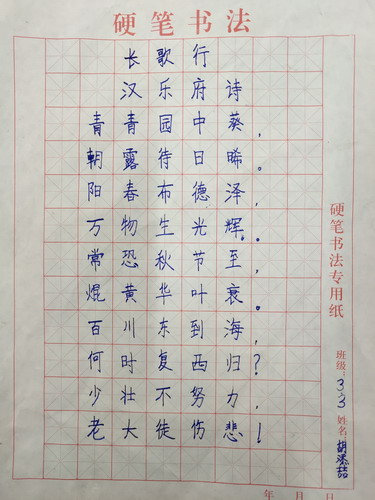 硬笔书法
长歌行
汉乐府诗
青青园中葵，
朝露待日晞。
阳春布德泽，
万物生光辉。
常恐秋节至，
焜黄华叶衰。
百川东到海，
何时复西归？
少壮不努力，
老大徒伤悲！
硬笔书法专用纸
班级：3.3 姓名
年 月 日